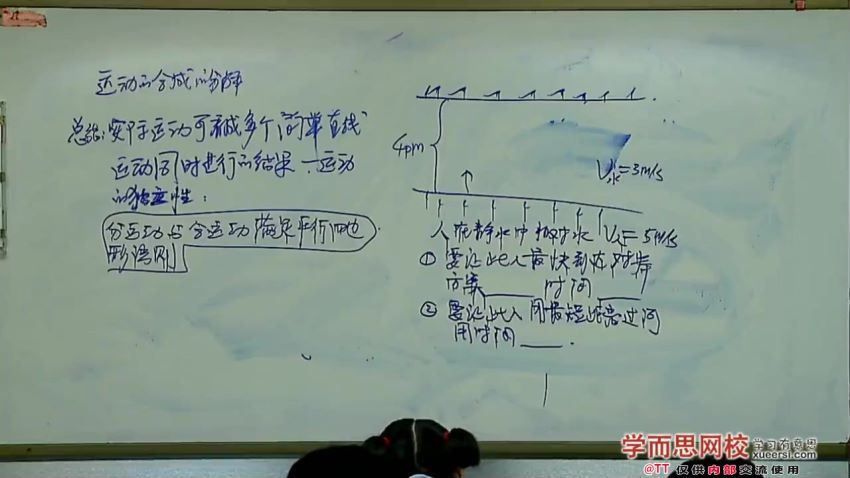 运动的合成的分解
总结:实际运动可看成多个简单直线
运动同时进行的结果—运动
的独立性:
分运动与合运动满足平行四边
形法则
40m
V水=3m/s
人在静水中 V人=5m/s
① 要让此人最快到达对岸
方案____ 时间____
② 要让此人用最短距离过河
用时间____.
学而思网校
学习有意思
xueersi.com
@TT 仅供内部交流使用